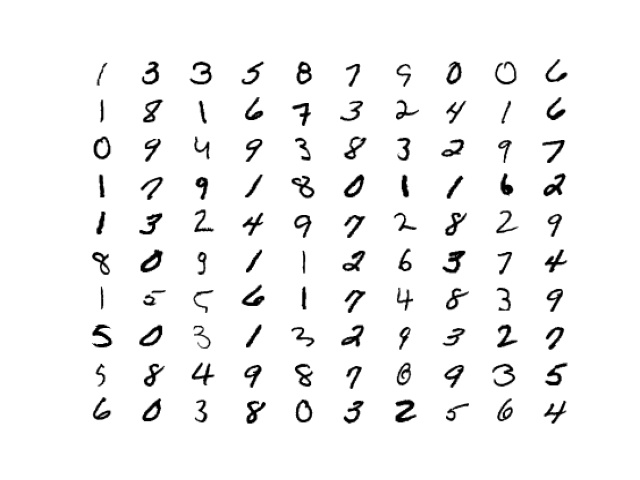 1 3 3 5 8 7 9 0 0 6
1 8 1 6 7 3 2 4 1 6
0 9 4 9 3 8 3 2 9 7
1 7 9 1 8 0 1 1 6 2
1 3 2 4 9 7 2 8 2 9
8 0 9 1 1 2 6 3 7 4
1 5 5 6 1 7 4 8 3 9
5 0 3 1 3 2 9 3 2 7
5 8 4 9 8 7 0 9 3 5
6 0 3 8 0 3 2 5 6 4